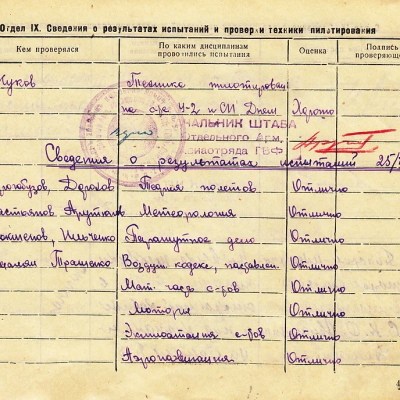 Отдел IX. Сведения о результатах испытаний и проверки техники пилотирования
Кем проверялся
По каким дисциплинам проводились испытания
Оценка
Подпись проверяющего
Техника пилотирован.
на с-те У-2 и СП Днем Хорошо
НАЧАЛЬНИК ШТАБА
Отдельного Арм.
Авиаотряда ГВФ
Сведения о результатах испытаний 25/
Дорохов Теория полетов Отлично
Метеорология Отлично
Ильченко Парашутное дело Отлично
Тращенко Воздуш. кодекс, наставлен. Отлично
Мат. часть с-тов Отлично
Моторы Отлично
Эксплоатация с-тов Отлично
Аэронавигация Отлично